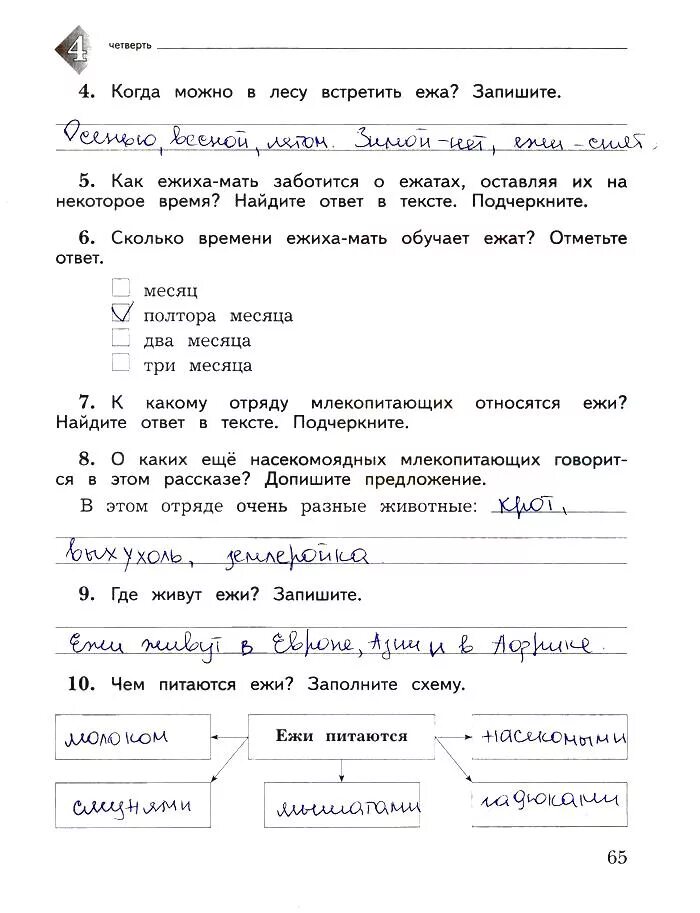 4 четверть
4. Когда можно в лесу встретить ежа? Запишите.
Осенью, весной, летом. Зимой-нет, ежи-спят.
5. Как ежиха-мать заботится о ежатах, оставляя их на
некоторое время? Найдите ответ в тексте. Подчеркните.
6. Сколько времени ежиха-мать обучает ежат? Отметьте
ответ.
месяц
полтора месяца
два месяца
три месяца
7. К какому отряду млекопитающих относятся ежи?
Найдите ответ в тексте. Подчеркните.
8. О каких ещё насекомоядных млекопитающих говорит-
ся в этом рассказе? Допишите предложение.
В этом отряде очень разные животные: крот,
выхухоль, землеройка
9. Где живут ежи? Запишите.
Ежи живут в Европе, Азии и в Африке.
10. Чем питаются ежи? Заполните схему.
молоком Ежи питаются насекомыми
слизнями мышатами гадюками
65